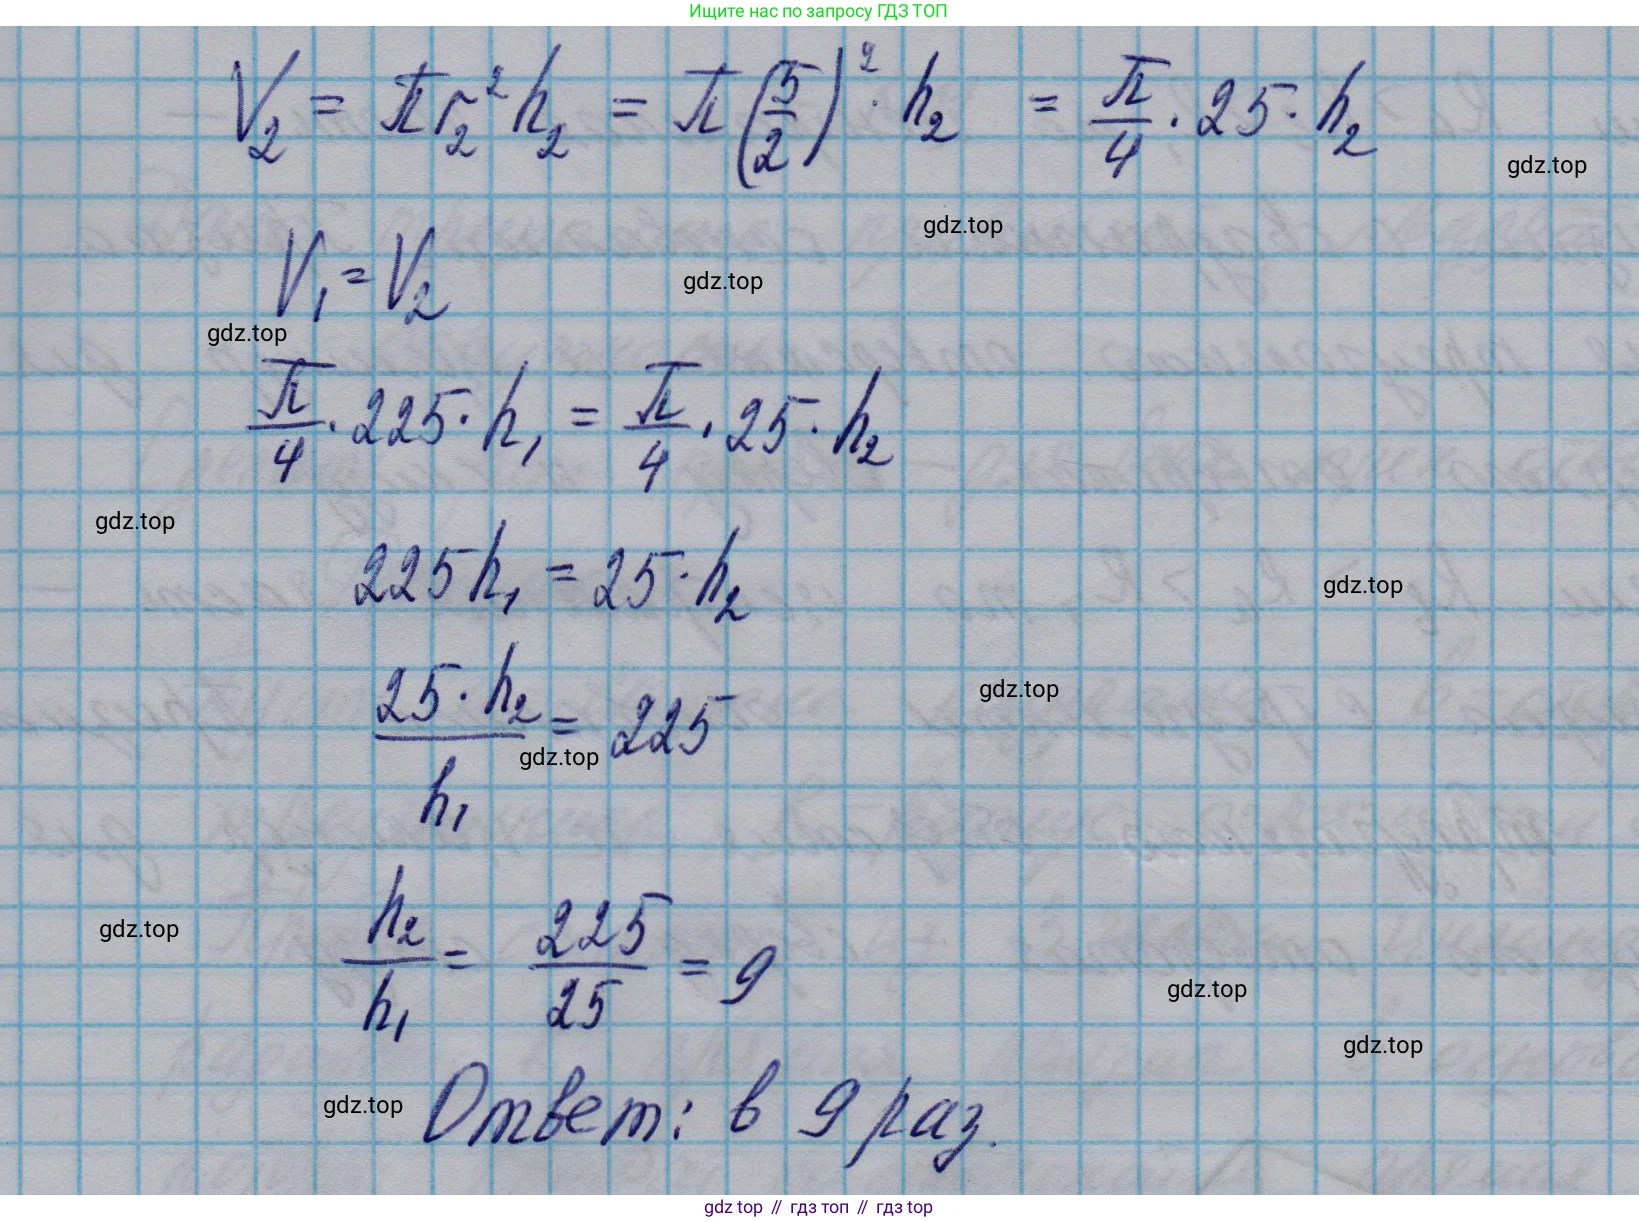 Ищите нас по запросу ГДЗ ТОП
V₂ = πr₂²h₂ = π(5/2)² · h₂ = π/4 · 25 · h₂
gdz.top
gdz.top
V₁ = V₂
gdz.top
gdz.top
π/4 · 225 · h₁ = π/4 · 25 · h₂
gdz.top
225h₁ = 25 · h₂
gdz.top
25 · h₂ / h₁ = 225
gdz.top
gdz.top
h₂/h₁ = 225/25 = 9
gdz.top
gdz.top
gdz.top
Ответ: в 9 раз.
gdz.top
gdz top // гдз топ // гдз top